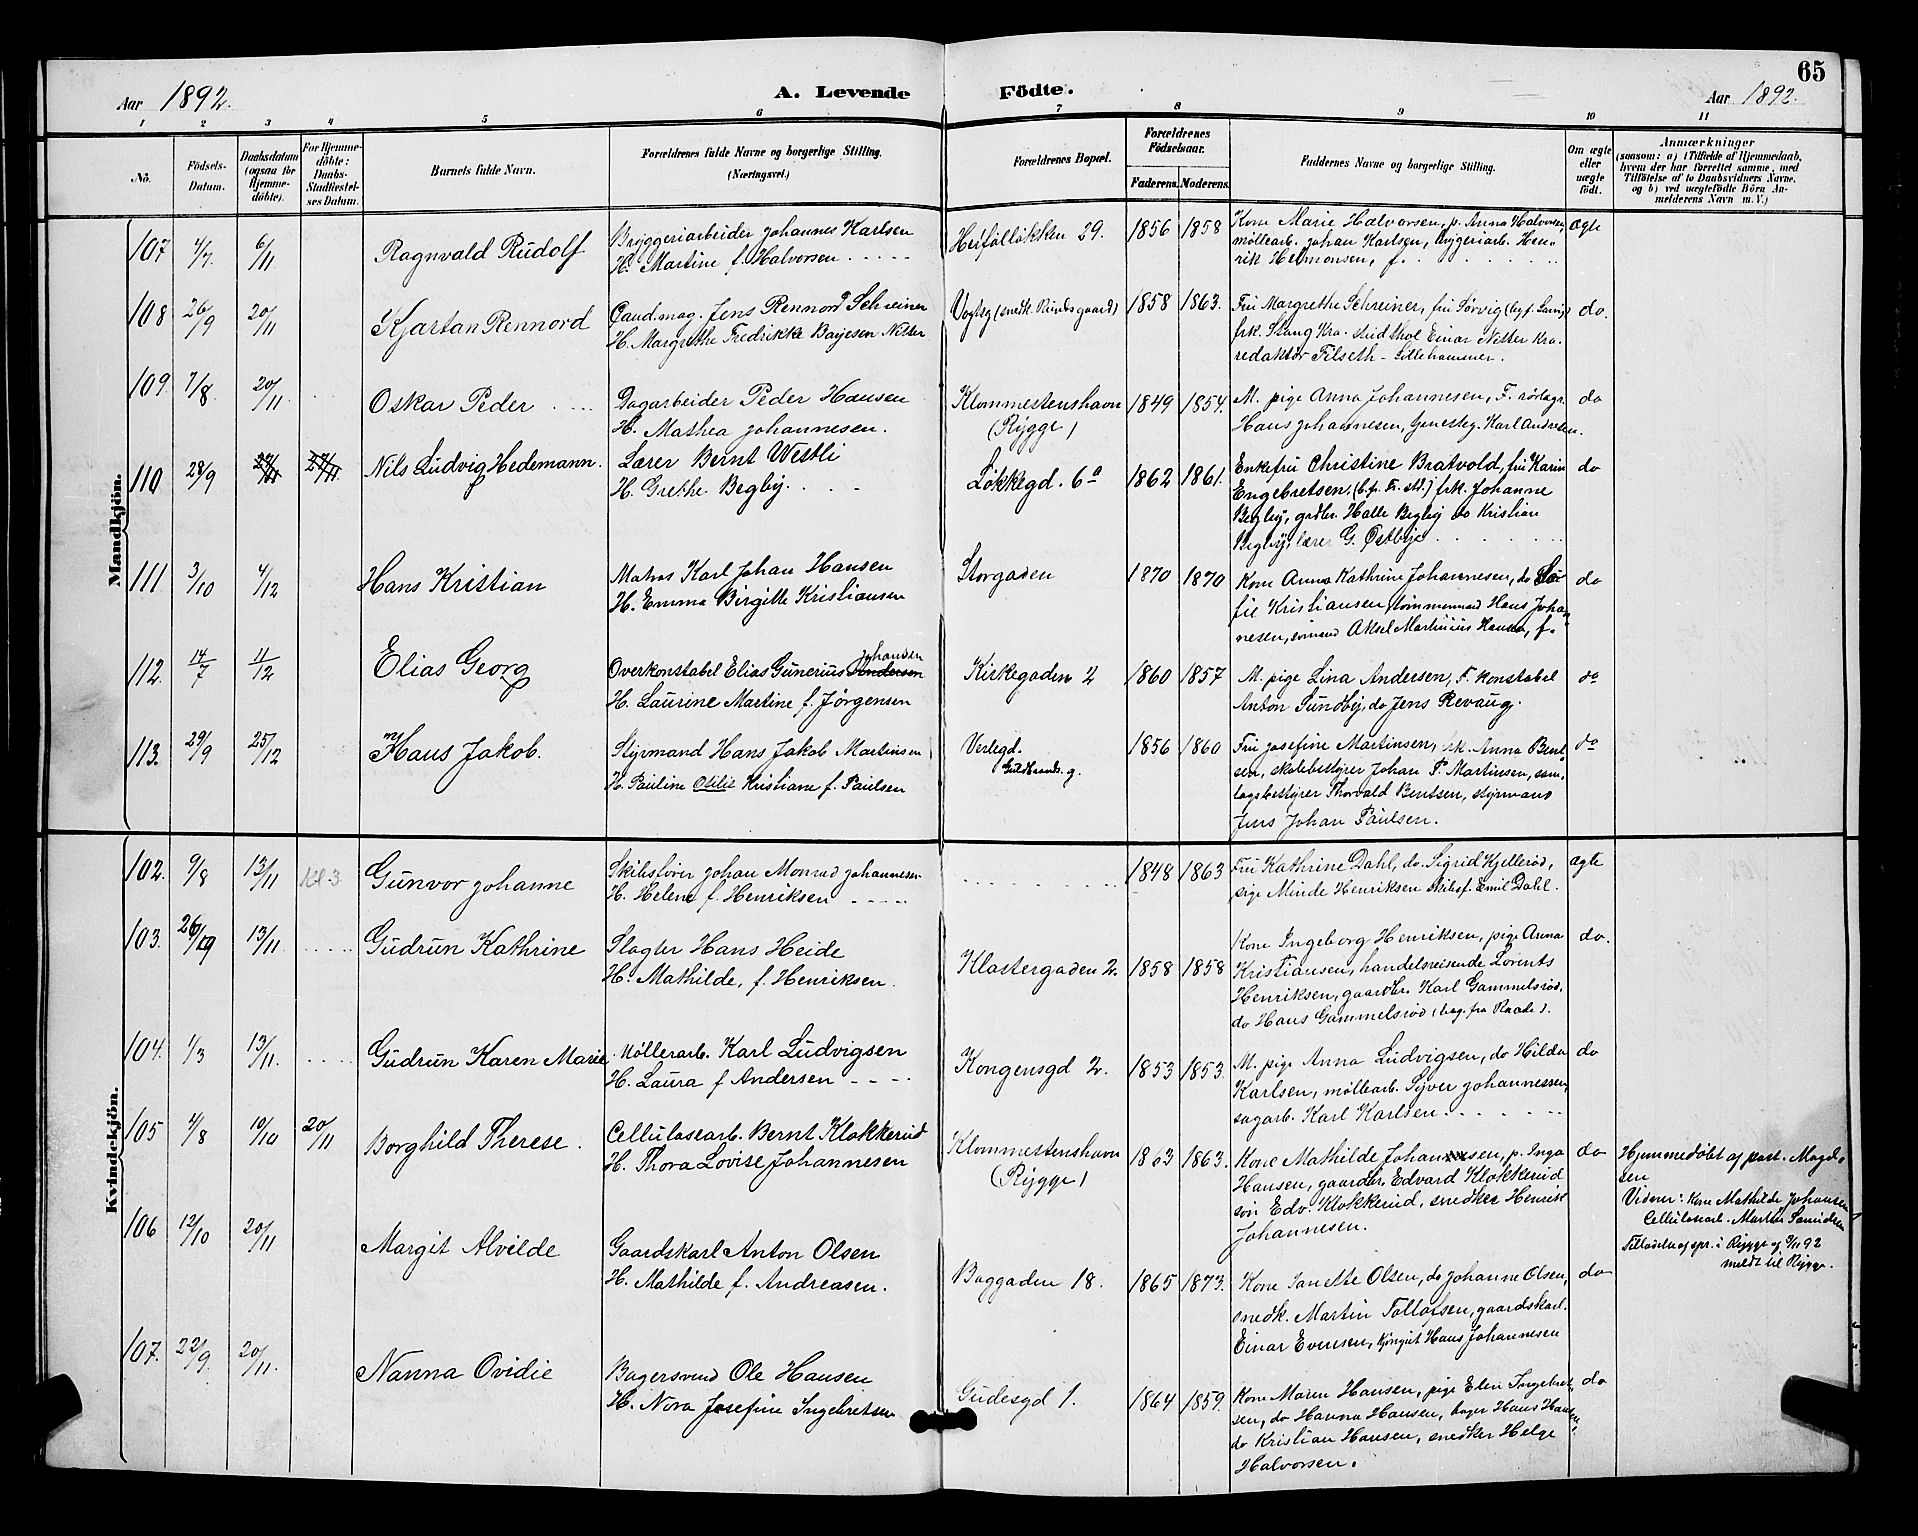 65
Aar 1892. A. Levende Födte. Aar 1892.
1 2 3 4 5 6 7 8 9 10 11
No.
Födsels-
Datum.
Daabsdatum
(ogsaa for
Hjemme-
döbte).
For Hjemme-
döbte:
Daabs-
Stadfæstel-
ses Datum.
Barnets fulde Navn.
Forældrenes fulde Navne og borgerlige Stilling.
(Næringsvei.)
Forældrenes Bopæl.
Forældrenes
Födselsaar.
Faderens. Moderens.
Faddernes Navne og borgerlige Stilling.
Om ægte
eller
uægte
födt.
Anmærkninger
(saasom: a) i Tilfælde af Hjemmedaab,
hvem der har forrettet samme, med
Tilföielse af to Daabsvidners Navne.
og b) ved uægtefödte Börn An-
melderens Navn m. V.)
Mandkjön.
107 4/7 6/11 Ragnvald Rudolf
Bryggeriarbeider Johannes Karlsen
H. Martine f. Halvorsen
29. 1856 1858
Kone Marie Halvorsen, p. Anna Halvorsen,
møllearb. Johan Karlsen, bryggeriarb. Hen-
rik Hermonsen, f.
ægte
108 26/9 20/11 Kjartan Rennord
Cand. mag. Jens Rennord Schreiner
H. Margrethe Fredrikke Bayesen Nitter
Vogtsg (snedk. Runds gaard) 1858 1863.
Fru Margrethe Schreiner, fru Sørvig
frk. Stang Kra. stud. theol Einar Nitter Kra.
redaktør Filseth - Lillehammer.
do.
109. 7/8 20/11 Oskar Peder
Dagarbeider Peder Hansen
H. Mathea Johannesen.
Klommestenshavn
(Rygge)
1849 1854.
M. pige Anna Johannesen, F. rørlagr.
Hans Johannesen, Karl Andresen.
do
110 28/9 27/11 27/11. Nils Ludvig Hedemann.
Lærer Bernt Westli
H. Grethe Begby.
Løkkegd. 6a 1862 1861.
Enkefru Christine Bratvold, fru Karin
Engebretsen, (b. p. Fr. std.) frk. Johanne
Begby, grdbr. Halle Begby do Kristian
Begby, lærer G. Østbye
do
111 3/10 4/12 Hans Kristian
Matros Karl Johan Hansen
H. Emma Birgitte Kristiansen
Storgaden 1870 1870
Kone Anna Kathrine Johannesen, do So-
fie Kristiansen, tømmermand Hans Johan-
nesen, sømand Aksel Martinius Hansen, f.
do
112. 14/7 11/12 Elias Georg
Johansen
Overkonstabel Elias Gunerius Andersen
H. Laurine Martine f. Jørgensen
Kirkegaden 2 1860 1857
M. pige Lina Andersen, F. Konstabel
Anton Sundby, do Jens Revaug.
do
113. 29/9 25/12 Hans Jakob.
Styrmand Hans Jakob Martinsen
H. Pauline Otilie Kristiane f. Paulsen
Verlegd.
Guldbrands. g.
1856 1860
Fru Josefine Martinsen, frk. Anna Bent-
sen, skolebestyrer Johan P. Martinsen, sam-
lagsbestyrer Thorvald Bentsen, styrmand
Jens Johan Paulsen.
do
Kvindekjön.
102. 9/8 13/11 Gunvor Johanne
Skibsfører Johan Monrad Johannesen
H. Helene f. Henriksen
1848 1863
Fru Kathrine Dahl, do. Sigrid Kjellerød,
pige Minde Henriksen skibsf. Emil Dahl.
ægte
103. 26/9 13/11. Gudrun Kathrine
Slagter Hans Heide
H. Mathilde, f. Henriksen.
Klostergaden 2. 1858 1858
Kone Ingeborg Henriksen, pige Anna
Kristiansen, handelsreisende Lorents
Henriksen, gaardbr. Karl Gammelsrød,
do Hans Gammelsrød (beg. fra Raade).
do.
104. 1/3 13/11. Gudrun Karen Marie
Møllerarb. Karl Ludvigsen
H. Laura f Andersen
Kongensgd 2. 1853 1853.
M. pige Anna Ludvigsen, do Hilda
Karlsen, møllearb. Syver Johannessen,
sagarb. Karl Karlsen.
do
105 4/8 10/10 20/11 Borghild Therese.
Cellulosearb. Bernt Klokkerud
H. Thora Lovise Johannesen
Klommestenshavn
(Rygge)
1863 1863.
Kone Mathilde Johansen, p. Inga
Hansen, gaardbr. Edvard Klokkerud
søn Edv. Klokkerud, snedker Henrik
Johannesen.
do
Hjemmedøbt af past. Magd-
sen
Vidner: Kone Mathilde Johansen
Cellulosearb. Martin
i Rygge af 9/11 92
meldt til Rygge.
106 12/10 20/11 Margit Alvilde
Gaardskarl Anton Olsen
H. Mathilde f. Andreasen.
Baggaden 18. 1865 1873.
Kone Janette Olsen, do Johanne Olsen,
snedk. Martin Tollofsen, gaardskarl.
Einar Evensen, Hans Johannesen
do
107. 22/9. 20/11. Nanna Ovidie
Bagersvend Ole Hansen
H. Nora Josefine Ingebretsen
Gudesgd 1. 1864 1859.
Kone Maren Hansen, pige Elen Ingebret-
sen, do Hanna Hansen, bager Hans Hansen,
do Kristian Hansen, snedker Helge
Halvorsen.
do